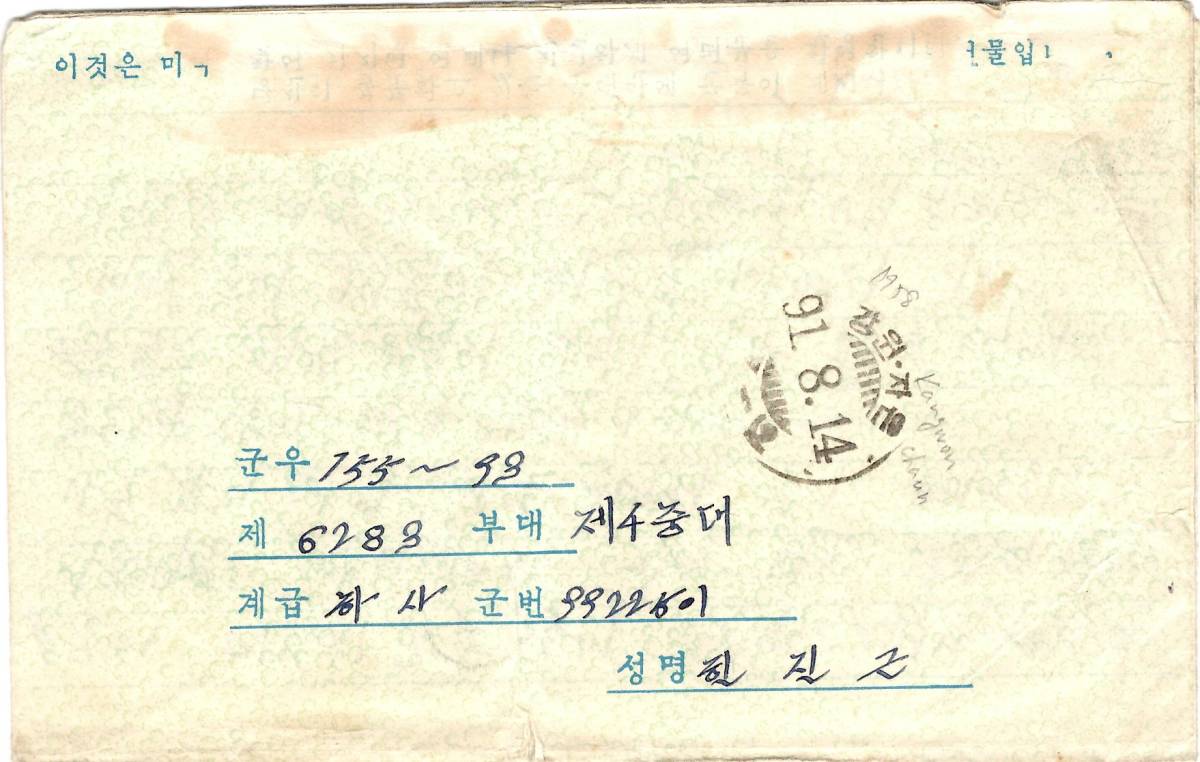 이것은 미
물입
1958
강원·자은
91. 8.14
Kangwon
chaun
군우 155~93
제 6283 부대 제4중대
계급 하사 군번 9922501
성명 한진근